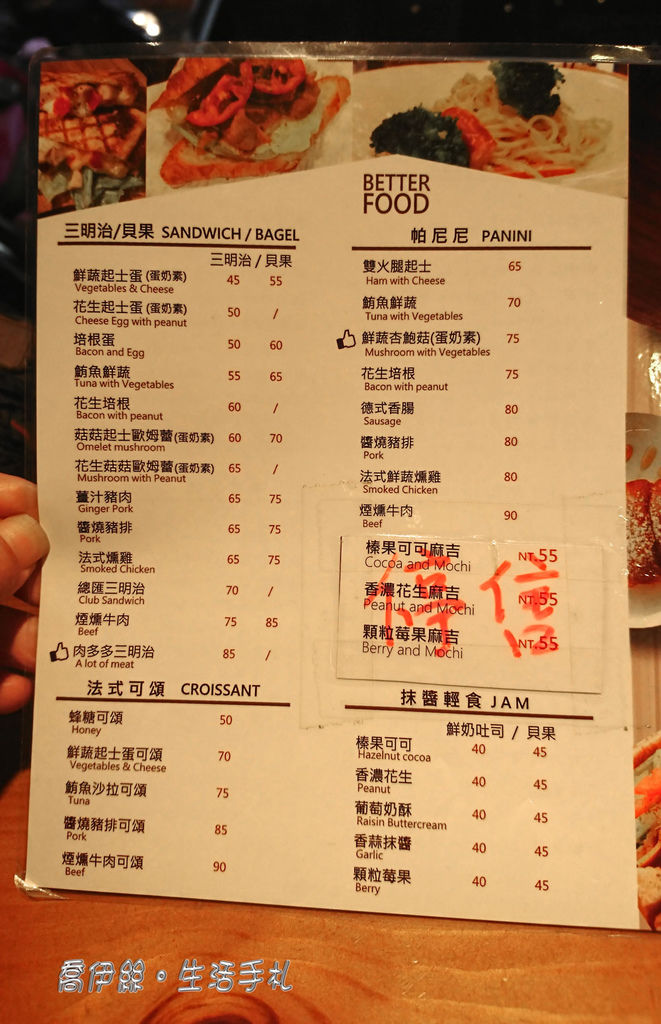 BETTER
FOOD
三明治/貝果 SANDWICH / BAGEL
三明治 / 貝果
鮮蔬起士蛋 (蛋奶素) 45 55
Vegetables & Cheese
花生起士蛋 (蛋奶素) 50 /
Cheese Egg with peanut
培根蛋 50 60
Bacon and Egg
鮪魚鮮蔬 55 65
Tuna with Vegetables
花生培根 60 /
Bacon with peanut
菇菇起士歐姆蕾(蛋奶素) 60 70
Omelet mushroom
花生菇菇歐姆蕾(蛋奶素) 65 /
Mushroom with Peanut
薑汁豬肉 65 75
Ginger Pork
醬燒豬排 65 75
Pork
法式燻雞 65 75
Smoked Chicken
總匯三明治 70 /
Club Sandwich
煙燻牛肉 75 85
Beef
肉多多三明治 85 /
A lot of meat
法式可頌 CROISSANT
蜂糖可頌 50
Honey
鮮蔬起士蛋可頌 70
Vegetables & Cheese
鮪魚沙拉可頌 75
Tuna
醬燒豬排可頌 85
Pork
煙燻牛肉可頌 90
Beef
帕尼尼 PANINI
雙火腿起士 65
Ham with Cheese
鮪魚鮮蔬 70
Tuna with Vegetables
鮮蔬杏鮑菇(蛋奶素) 75
Mushroom with Vegetables
花生培根 75
Bacon with peanut
德式香腸 80
Sausage
醬燒豬排 80
Pork
法式鮮蔬燻雞 80
Smoked Chicken
煙燻牛肉 90
Beef
榛果可可麻吉 NT.55
Cocoa and Mochi
香濃花生麻吉 NT.55
Peanut and Mochi
顆粒莓果麻吉 NT.55
Berry and Mochi
停
抹醬輕食 JAM
鮮奶吐司 / 貝果
榛果可可 40 45
Hazelnut cocoa
香濃花生 40 45
Peanut
葡萄奶酥 40 45
Raisin Buttercream
香蒜抹醬 40 45
Garlic
顆粒莓果 40 45
Berry
喬伊絲。生活手札